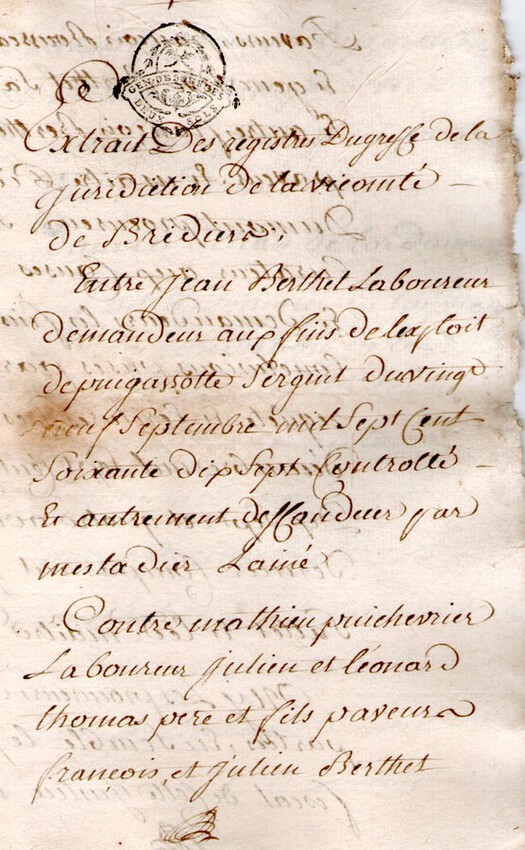 GEN. DE BOURGES
DEUX SOLS
Extrait Des registres Dugreffe de la
Juridiction de la vicomté
de Bridiers,
Entre Jean Berthet Laboureur
demandeur aux fins de lexploit
depuigassotte Sergent du vingt
neuf Septembre mil Sept Cent
Soixante dix Sept Controllé
Et autrement deffandeur par
mestadier Lainé
Contre mathieu puichevrier
Laboureur Julien et léonard
thomas pere et fils paveurs
françois, et Julien Berthet